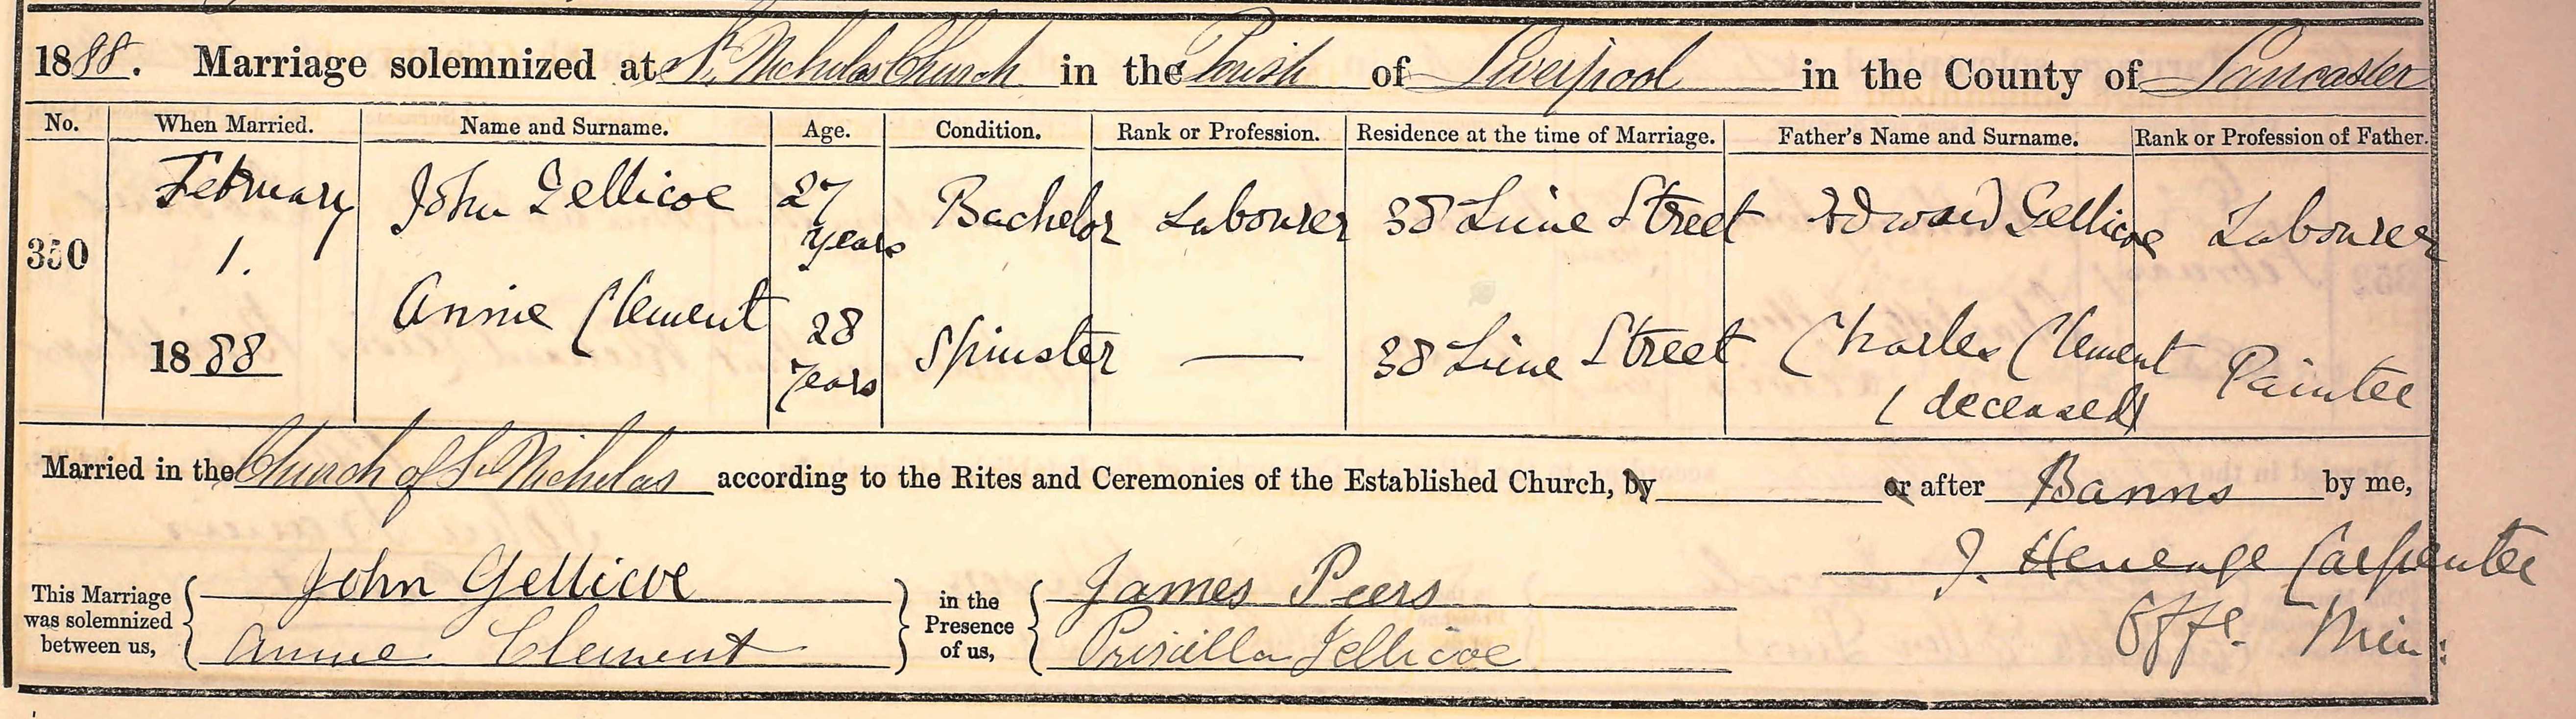 1888. Marriage solemnized at St. Nicholas Church in the Parish of Liverpool in the County of Lancaster
No. When Married. Name and Surname. Age. Condition. Rank or Profession. Residence at the time of Marriage. Father's Name and Surname. Rank or Profession of Father.
350 February 1. 1888 John Gellicoe 27 years Bachelor Labourer 38 Lime Street Edward Gellicoe Labourer
Annie Clement 28 years Spinster — 38 Lime Street Charles Clement (deceased) Painter
Married in the Church of St Nicholas according to the Rites and Ceremonies of the Established Church, by or after Banns by me,
J. Heneage Carpenter
Offg. Min:
This Marriage was solemnized between us, John Gellicoe Annie Clement in the Presence of us, James Peers Priscilla Jellicoe